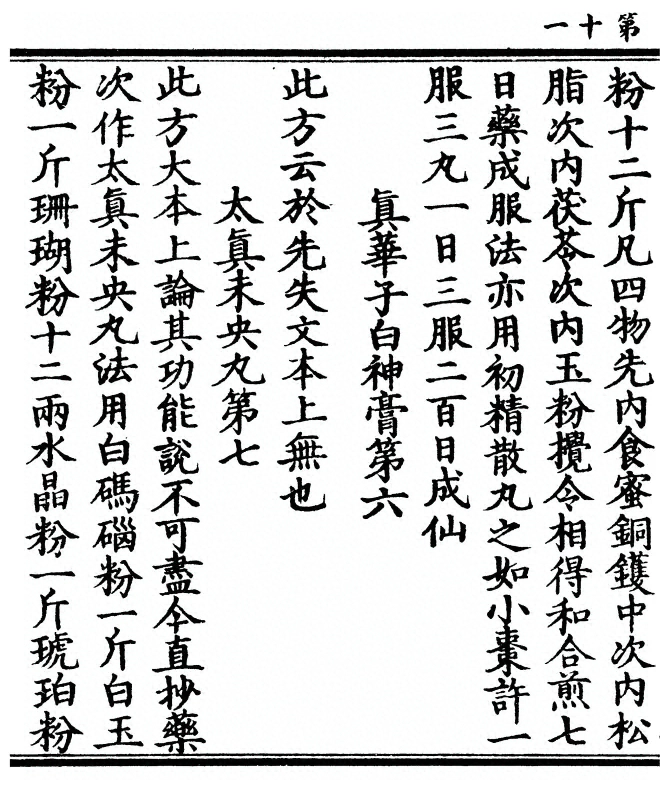 第十一
粉十二斤凡四物先内食蜜銅鑊中次内松
脂次内茯苓次内玉粉攪令相得和合煎七
日藥成服法亦用初精散丸之如小棗許一
服三丸一日三服二百日成仙
眞華子白神膏第六
此方云於先失文本上無也
太眞未央丸第七
此方大本上論其功能說不可盡今直抄藥
次作太眞未央丸法用白碼碯粉一斤白玉
粉一斤珊瑚粉十二兩水晶粉一斤琥珀粉